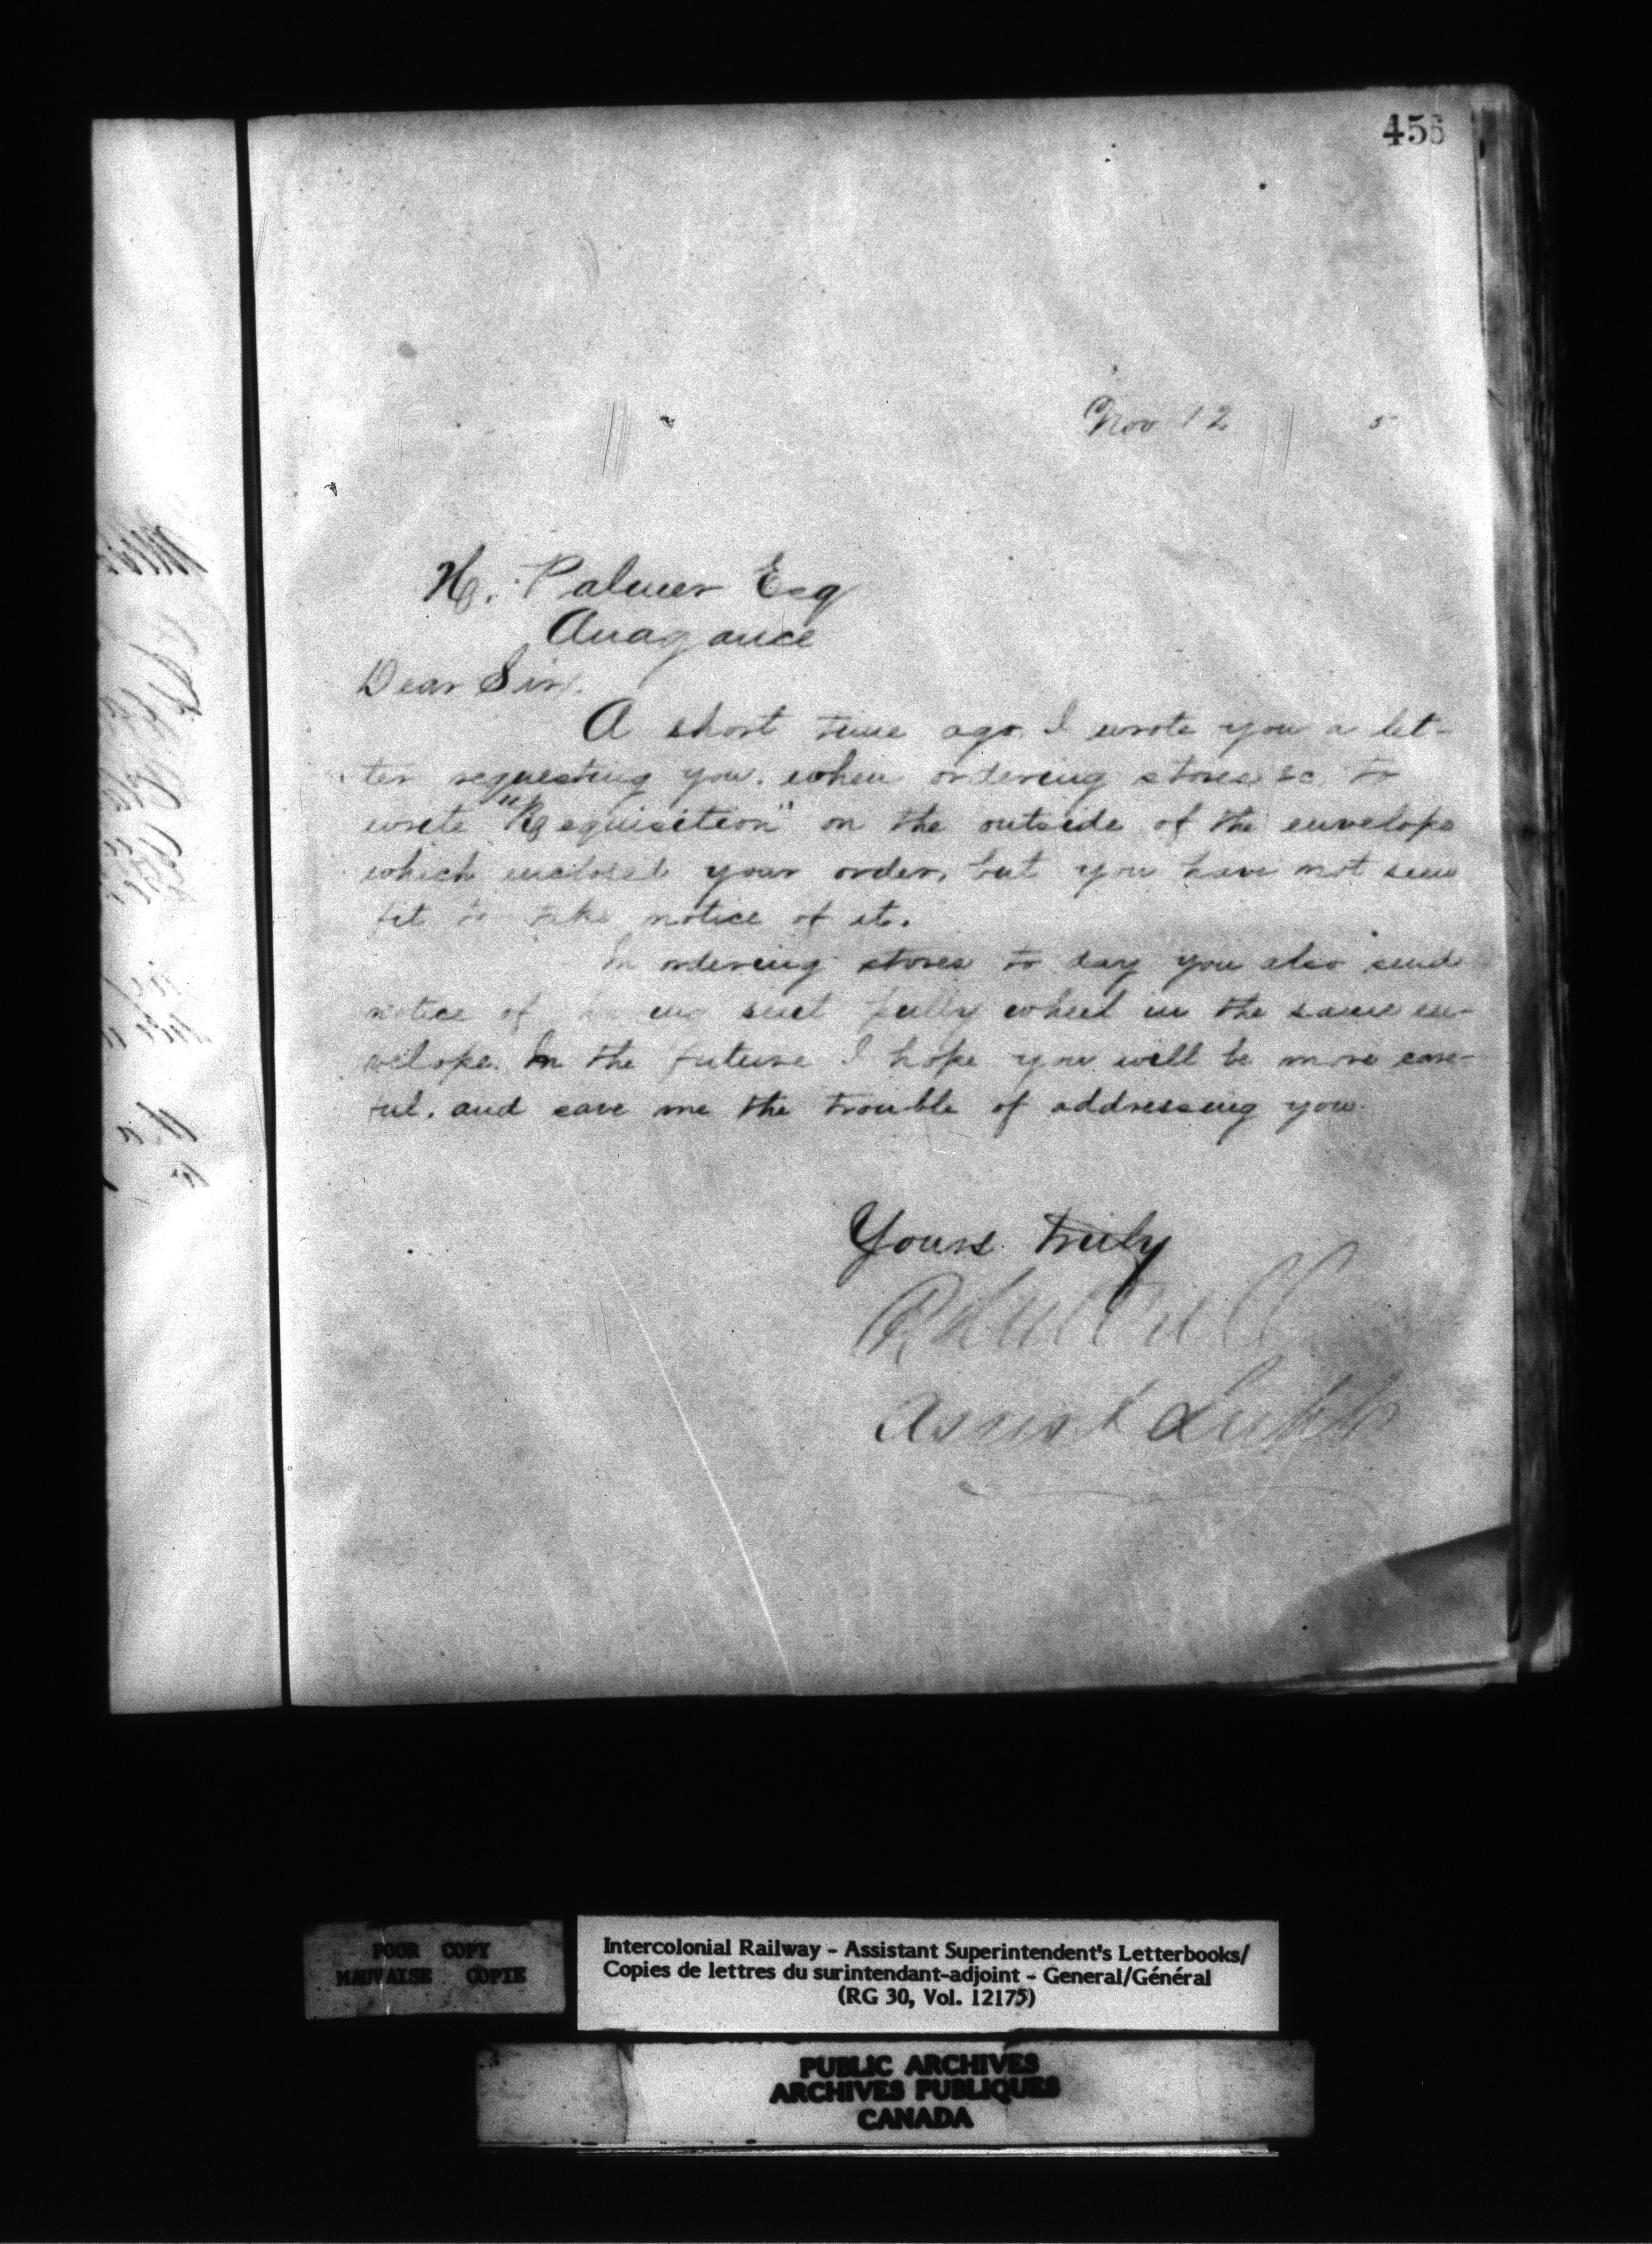 456
Nov 12 5
H. Palmer Esq
Anagance
Dear Sir.
A short time ago I wrote you a let-
ter requesting you, when ordering stores &c. to
write "Requisition" on the outside of the envelope
which enclosed your order, but you have not seen
fit to take notice of it.
In ordering stores to day you also send
notice of having sent pully wheel in the same en-
velope. In the future I hope you will be more care-
ful. and save me the trouble of addressing you.
Yours truly
Assist Supt
POOR COPY
MAUVAISE COPIE
Intercolonial Railway - Assistant Superintendent's Letterbooks/
Copies de lettres du surintendant-adjoint - General/Général
(RG 30, Vol. 12175)
PUBLIC ARCHIVES
ARCHIVES PUBLIQUES
CANADA